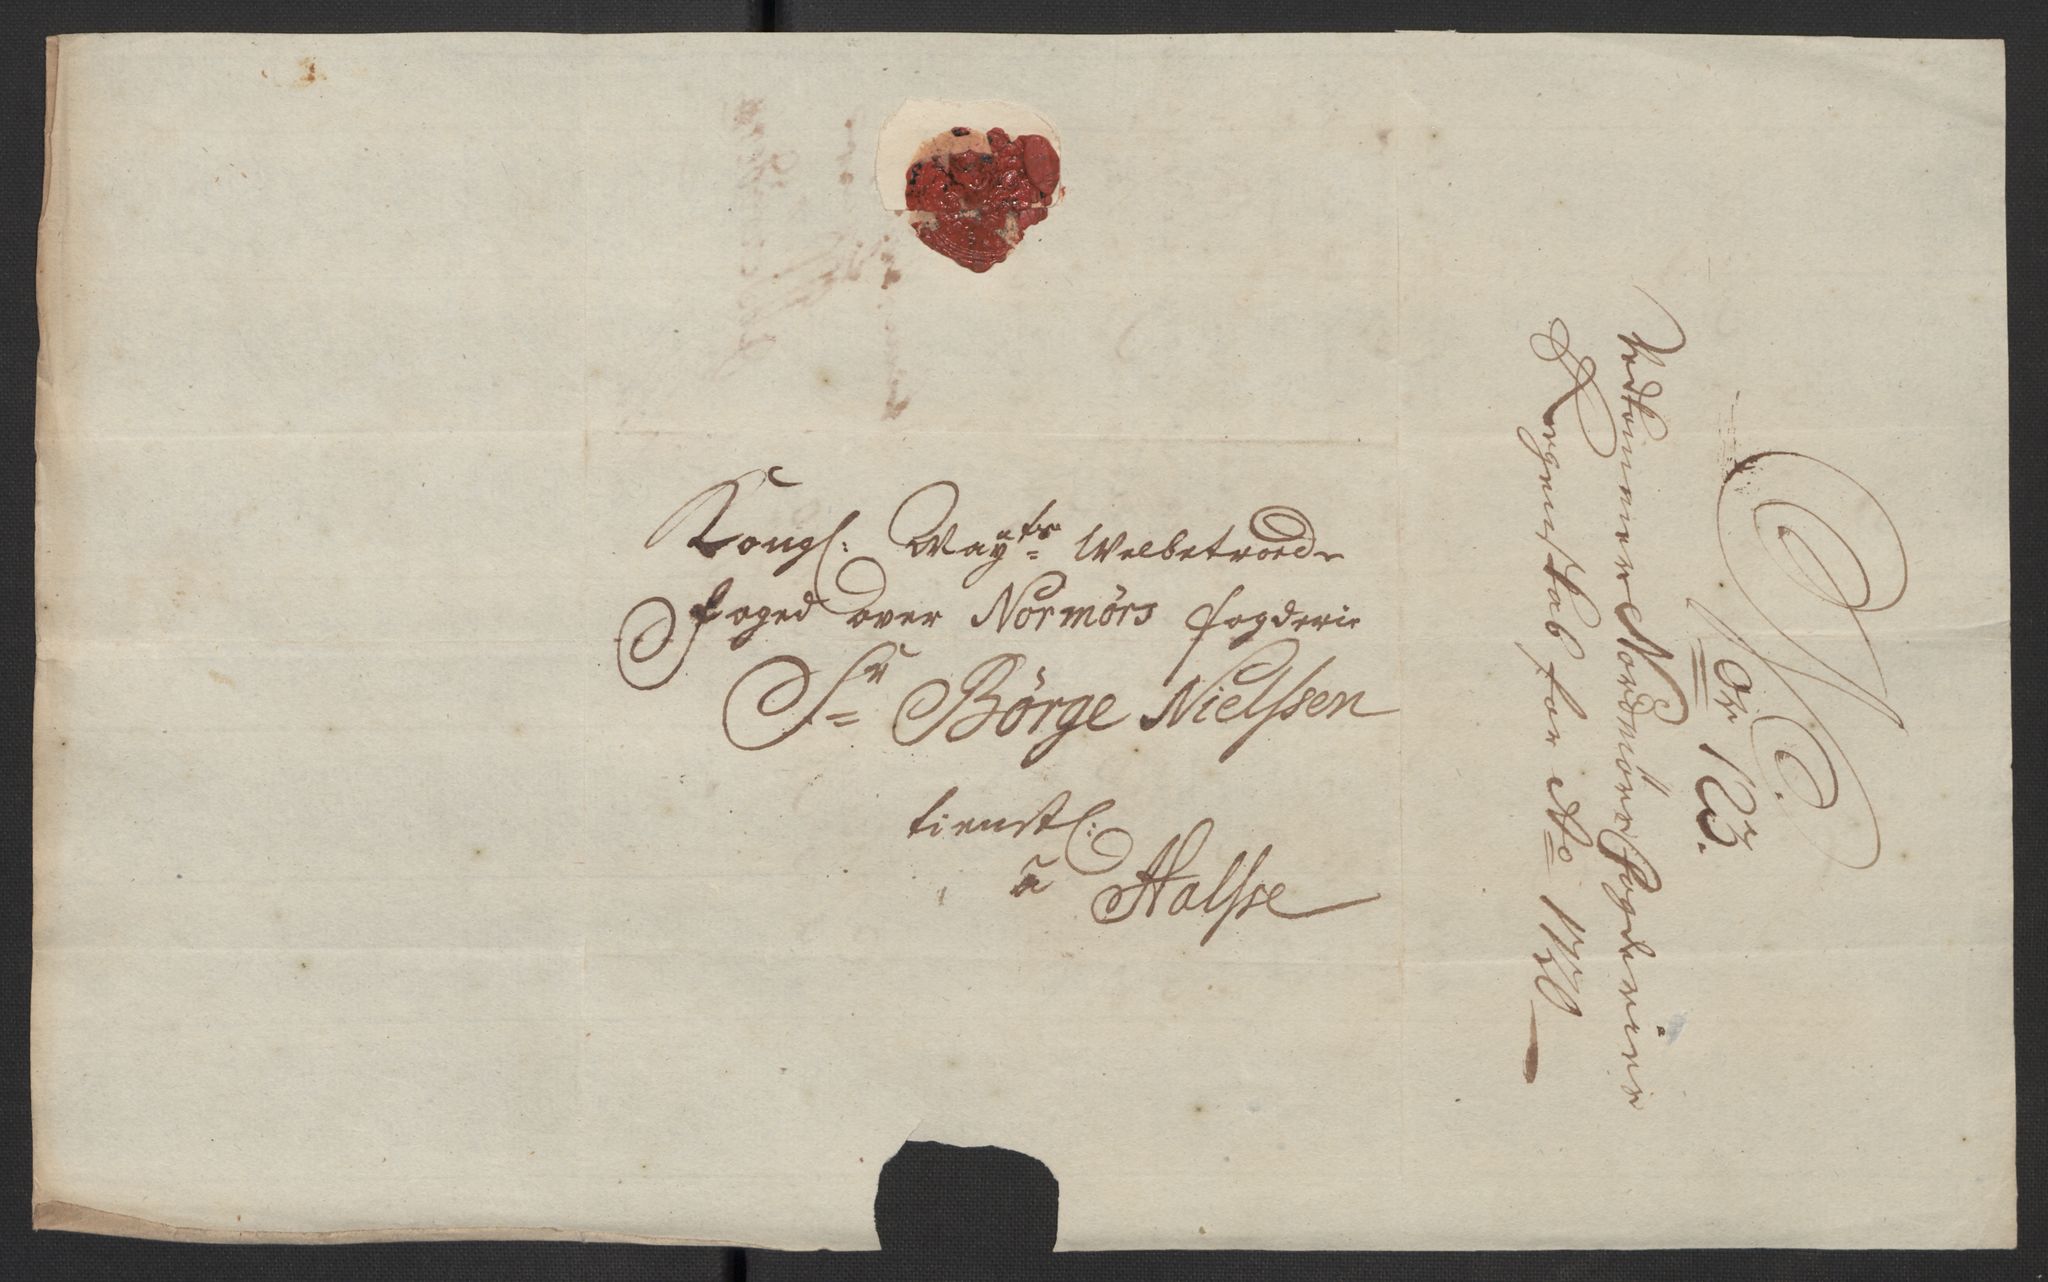 Kongl: Mayts Welbetroede
foged over Normörs fogderie
Sr Börge Nielssen
tienstl:
a Halsse
No 13.
Vedkommer Nordmöre Fogderies
Regenskab for Ao 1720